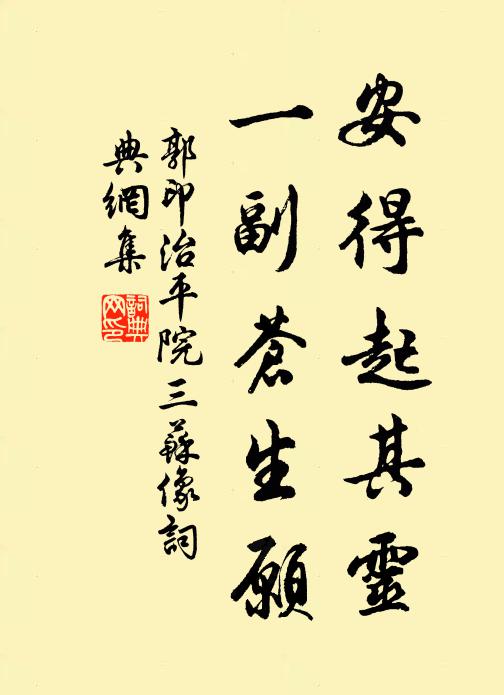 安得起其靈
一副蒼生願
郭印治平院三蘇像詞
典網集
詞典網印